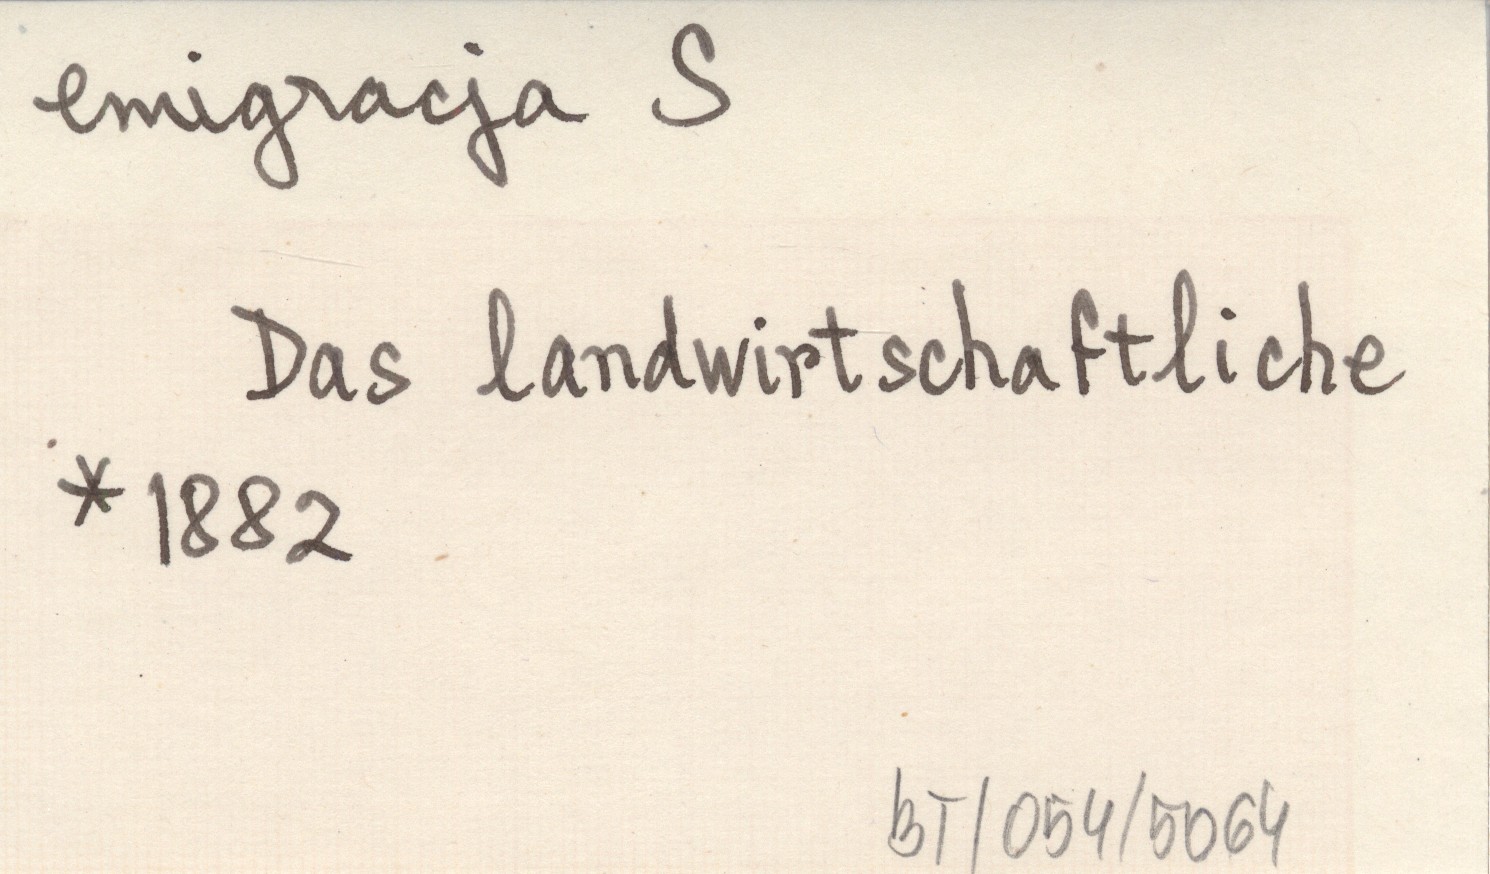 emigracja S
Das landwirtschaftliche
*1882
BT/054/5064